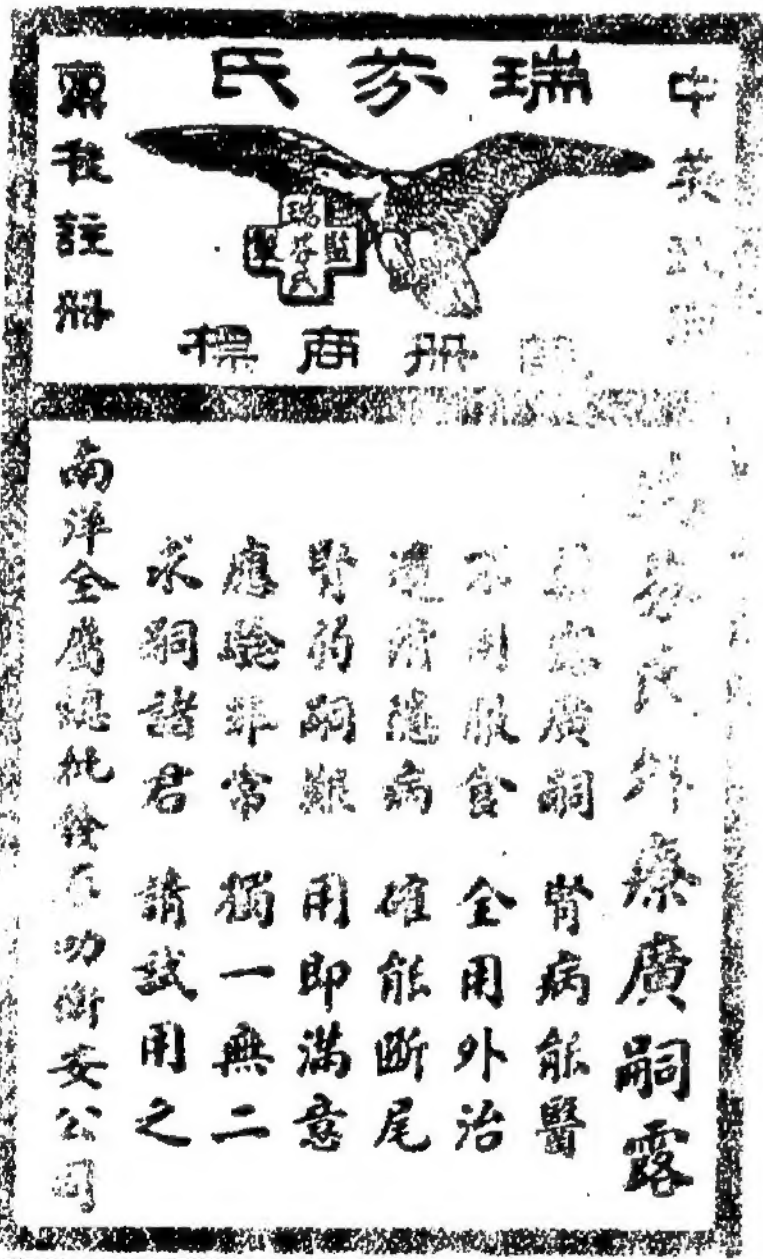 瑞芬氏
中英
註冊商標
註冊
瑞芬氏
監製
芬氏外療廣嗣露
廣嗣 腎病能醫
不用服食 全用外治
遺精 病 確能斷尾
腎弱嗣艱 用即滿意
應驗非常 獨一無二
求嗣諸君 請試用之
南洋全屬總批發 功衛安公司